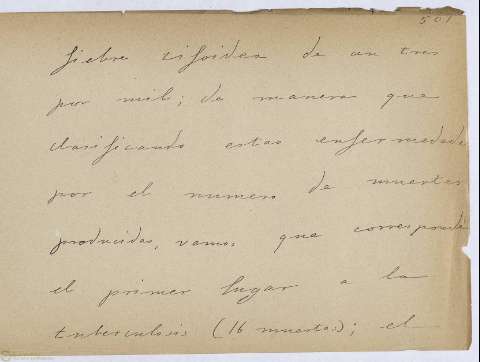 501
fiebre tifoidea de un tres
por mil; de manera que
clasificando estas enfermedade
por el numero de muertes
producidas, vemos que corresponde
el primer lugar a la
tuberculosis (16 muertos); el